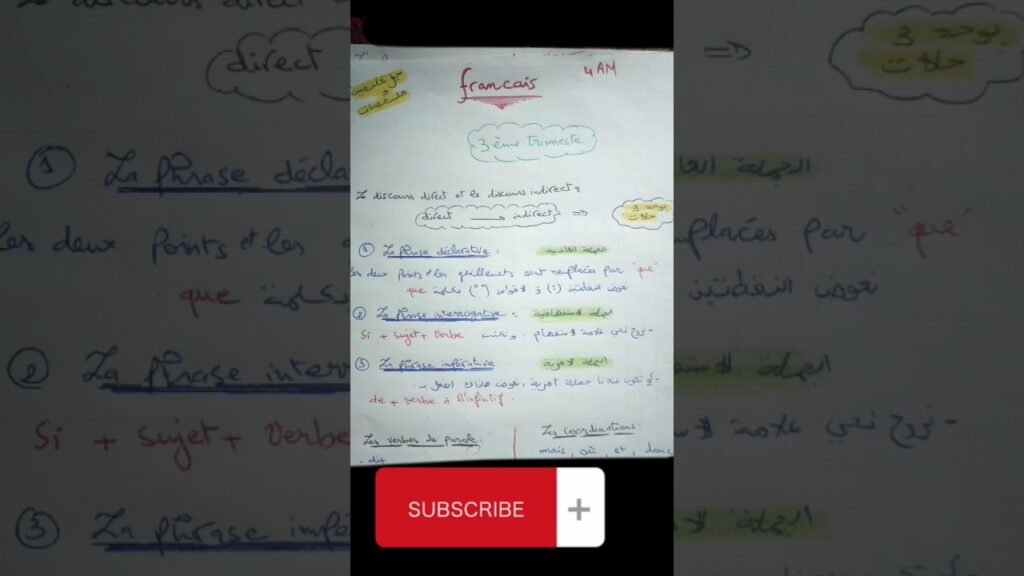 francais
4 AM
3 ème trimestre
Le discours direct et le discours indirect :
direct → indirect ⇒ يوجد 3 حلات
① La Phrase déclarative : الجملة العادية
Les deux Points et les guillemets sont remplacés par "que"
نعوض النقطتين (:) و الأقواس (" ") بكلمة que
② La Phrase interrogative : الجملة الاستفهامية
- نروح نحي علامة الاستفهام و نكتب Si + Sujet + Verbe
③ La Phrase impérative الجملة الأمرية
de + verbe à l'infinitif.
Les verbes de parole :
- dit
Les coordinations :
mais, où, et, donc
SUBSCRIBE +